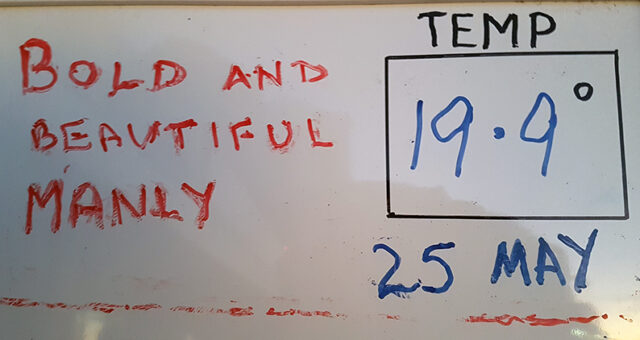 BOLD AND
BEAUTIFUL
MANLY
TEMP
19.9°
25 MAY